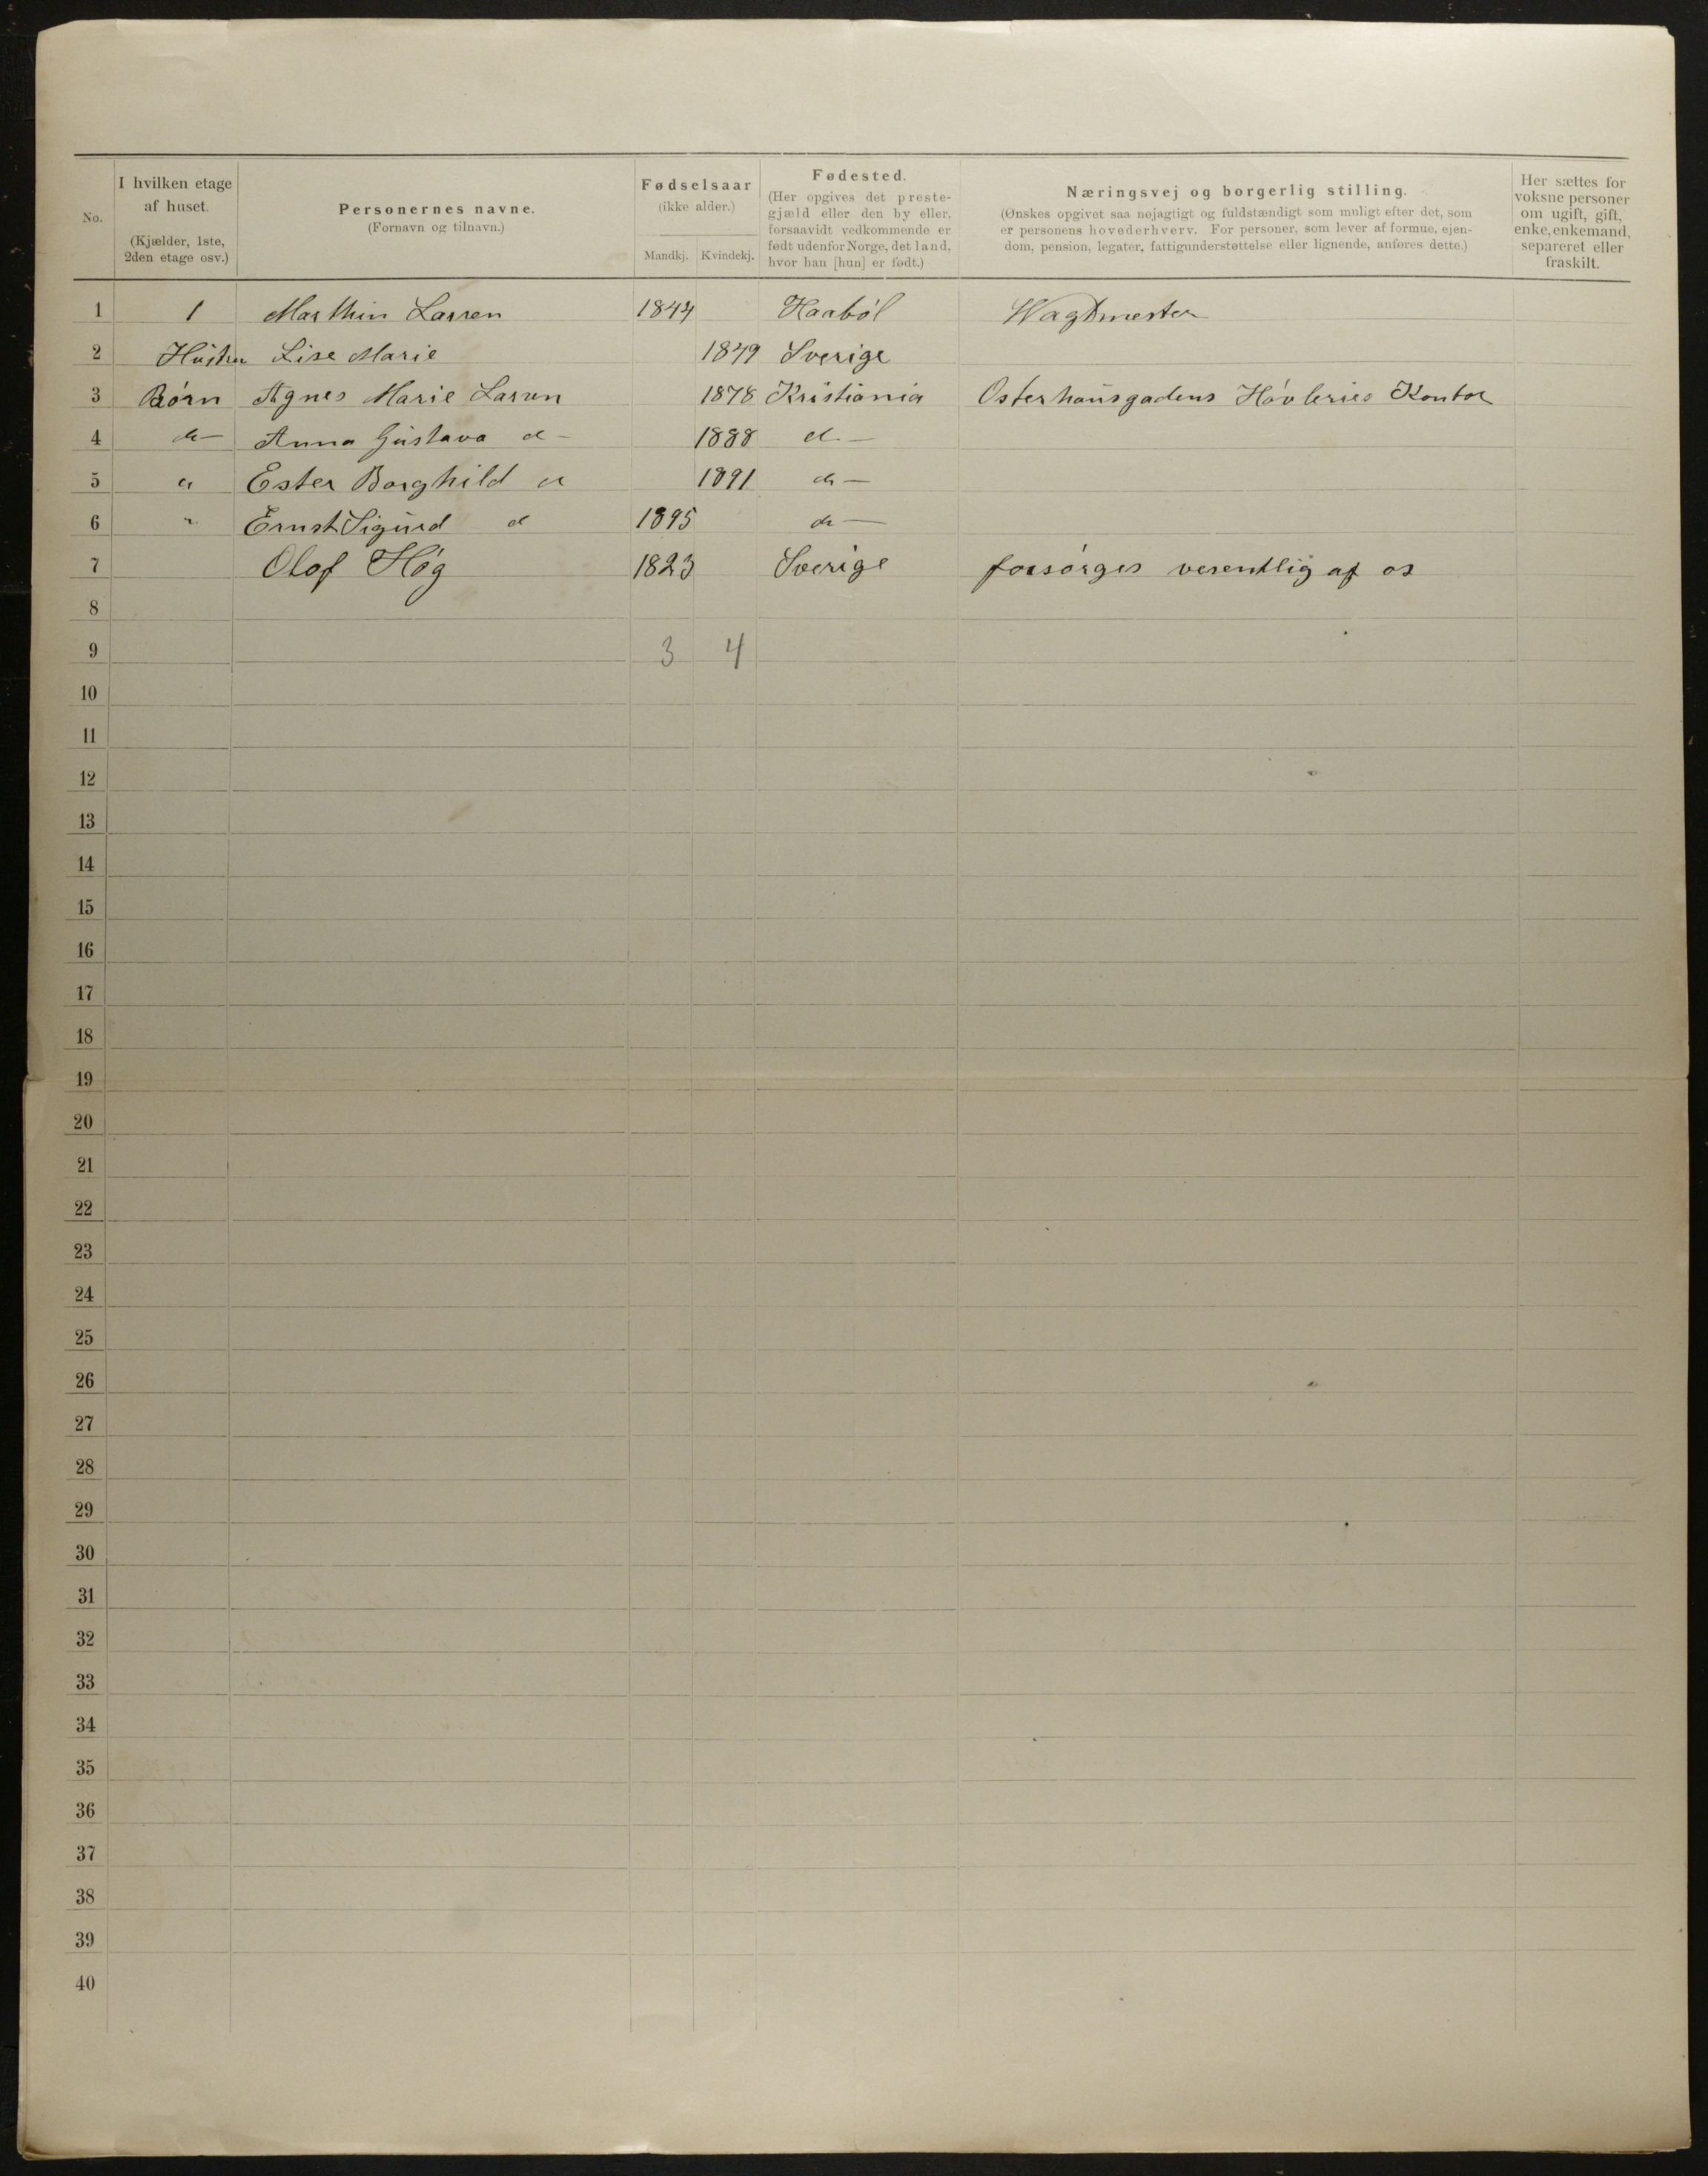 No.
I hvilken etage
af huset.
(Kjælder, 1ste,
2den etage osv.)
Personernes navne.
(Fornavn og tilnavn.)
Fødselsaar
(ikke alder.)
Mandkj. Kvindekj.
Fødested.
(Her opgives det preste-
gjæld eller den by eller,
forsaavidt vedkommende er
født udenfor Norge, det land,
hvor han [hun] er født.)
Næringsvej og borgerlig stilling.
(Ønskes opgivet saa nøjagtigt og fuldstændigt som muligt efter det, som
er personens hovederhverv. For personer, som lever af formue, ejen-
dom, pension, legater, fattigunderstøttelse eller lignende, anføres dette.)
Her sættes for
voksne personer
om ugift, gift,
enke, enkemand,
separeret eller
fraskilt.
1 1 Marthin Larsen 1844 Haabøl Wagtmester
2 Hustru Lise Marie 1849 Sverige
3 Børn Agnes Marie Larsen 1878 Kristiania Osterhausgadens Høvleries Kontor
4 do Anna Gustava do 1888 do
5 do Ester Borghild do 1891 do
6 " Ernst Sigurd do 1895 do
7 Olof Høg 1823 Sverige forsørges vesentlig af os
8
9 3 4
10
11
12
13
14
15
16
17
18
19
20
21
22
23
24
25
26
27
28
29
30
31
32
33
34
35
36
37
38
39
40